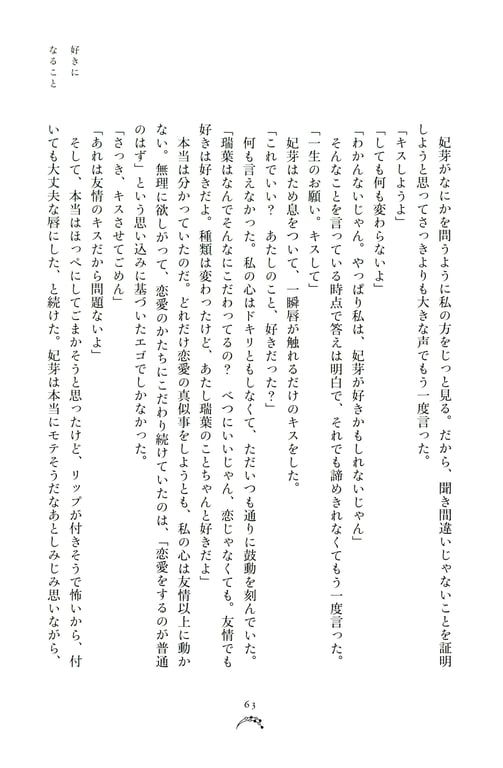 妃芽がなにかを問うように私の方をじっと見る。だから、聞き間違いじゃないことを証明
しようと思ってさっきよりも大きな声でもう一度言った。
「キスしようよ」
「しても何も変わらないよ」
「わかんないじゃん。やっぱり私は、妃芽が好きかもしれないじゃん」
そんなことを言っている時点で答えは明白で、それでも諦めきれなくてもう一度言った。
「一生のお願い。キスして」
妃芽はため息をついて、一瞬唇が触れるだけのキスをした。
「これでいい?　あたしのこと、好きだった?」
何も言えなかった。私の心はドキリともしなくて、ただいつも通りに鼓動を刻んでいた。
「瑞葉はなんでそんなにこだわってるの?　べつにいいじゃん、恋じゃなくても。友情でも
好きは好きだよ。種類は変わったけど、あたし瑞葉のことちゃんと好きだよ」
本当は分かっていたのだ。どれだけ恋愛の真似事をしようとも、私の心は友情以上に動か
ない。無理に欲しがって、恋愛のかたちにこだわり続けていたのは、「恋愛をするのが普通
のはず」という思い込みに基づいたエゴでしかなかった。
「さっき、キスさせてごめん」
「あれは友情のキスだから問題ないよ」
そして、本当はほっぺにしてごまかそうと思ったけど、リップが付きそうで怖いから、付
いても大丈夫な唇にした、と続けた。妃芽は本当にモテそうだなあとしみじみ思いながら、
好きに
なること
63